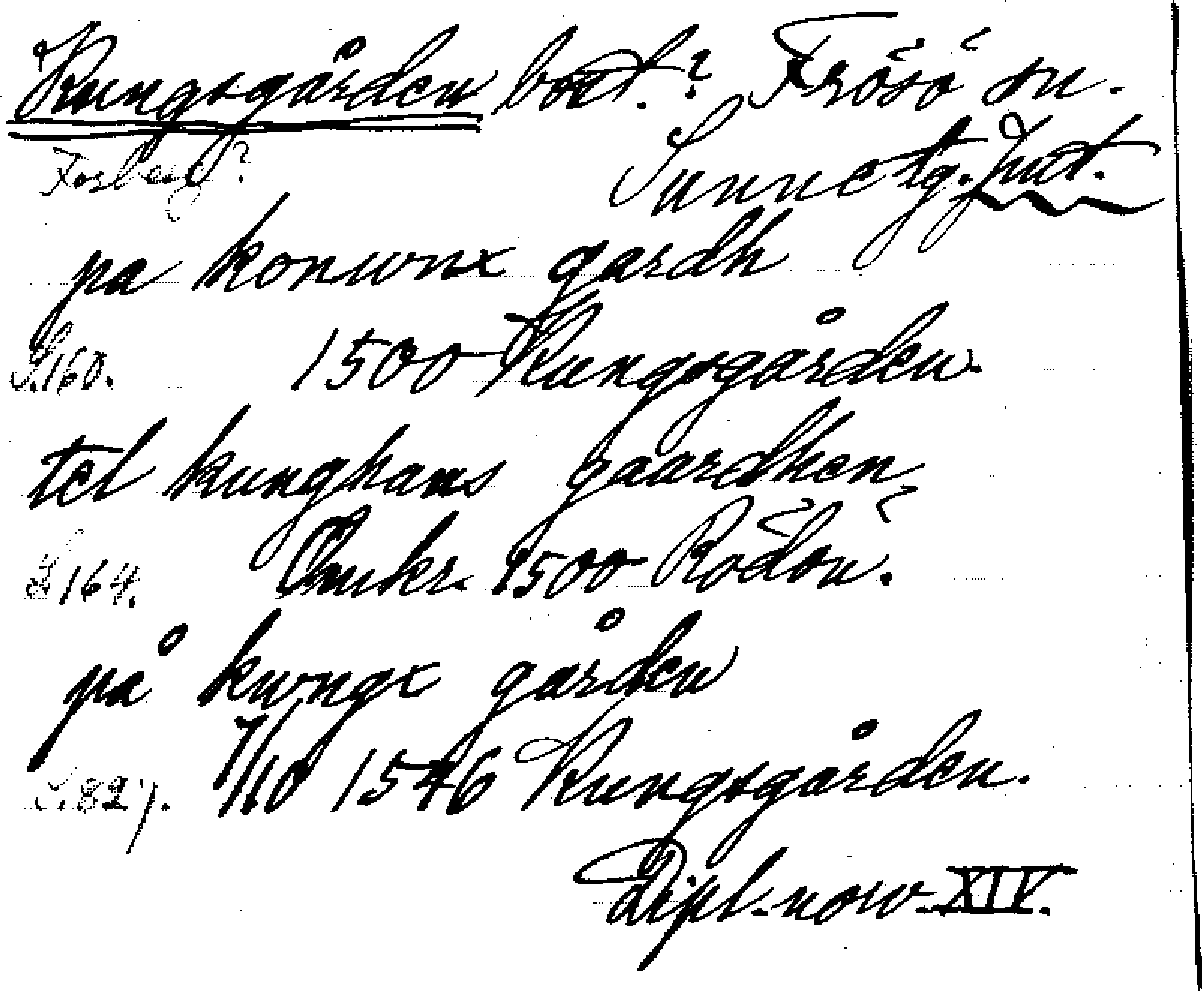 Kungsgården bost.? Frösö sn.
Forberg? Sunne tg. Jmt.
pa konwnx gardh
S.160. 1500 Kungsgården.
tel kunghans gaardhen
S.164. Omkr. 1500 Rödön.
på kwngx gården
S.827. 7/10 1546 Kungsgården.
Dipl. norv. XIV.